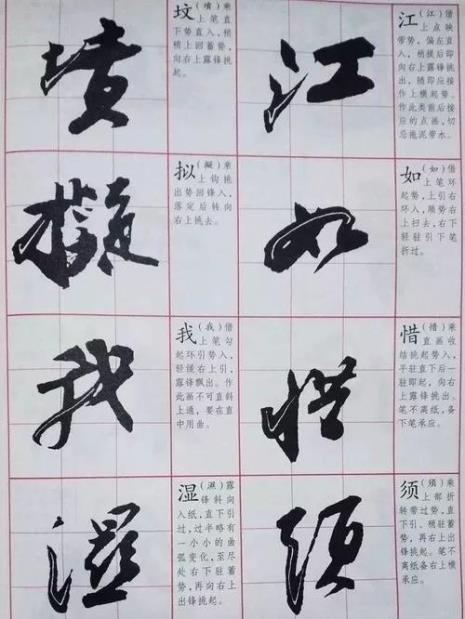 墳
坟(墳)乘
上笔直
下势直入,稍
稍上回蓄势,
向右上露锋挑
起。
江
江(江)借
上点映
带势,偏左直
入,稍按后即
向右上露锋挑
出,随即应接
作上横起势。
作此类前后接
应的点画,切
忌拖泥带水。
擬
拟(擬)乘
上钩挑
出势回锋入,
落定后转向
右上挑去。
如
如(如)借
上笔环
起势,上引右
环入,顺势右
上扫去,右下
轻驻引下笔
折过。
我
我(我)借
上笔勾
起环引势入,
轻缓右上引,
露锋飘出。作
此画不可直斜
上通,要在直
中用曲。
惜
惜(惜)乘
直画收
结挑起势入,
平驻直下后一
驻即起,向右
上露锋挑出。
笔不离纸,备
下笔承应。
濕
湿(濕)露
锋斜向
入纸,直下引
过,过半略有
一小小的曲
弧变化,至尽
处右下驻蓄
势,再向右上
出锋挑起。
須
须(須)乘
上部折
转带过势,直
下引、稍驻蓄
势,再右上出
锋挑起。笔不
离纸备右上横
承应。